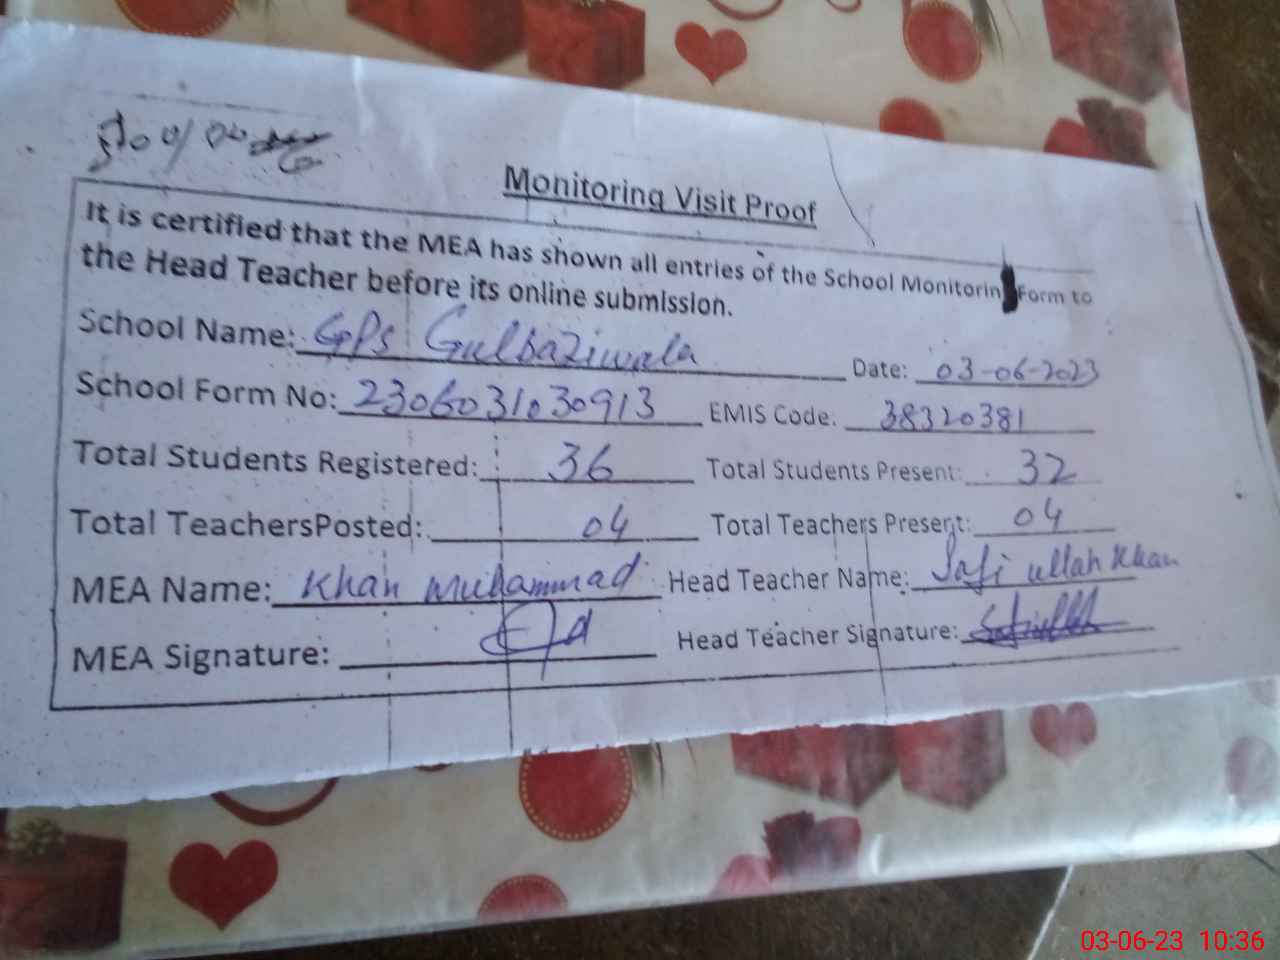 Monitoring Visit Proof
It is certified that the MEA has shown all entries of the School Monitorin Form to
the Head Teacher before its online submission.
School Name: GPS Gulbaziwala Date: 03-06-2023
School Form No: 2306031030913 EMIS Code. 38320381
Total Students Registered: 36 Total Students Present: 32
Total TeachersPosted: 04 Total Teachers Present: 04
MEA Name: Khan Muhammad Head Teacher Name: Safi ullah Khan
MEA Signature: Head Teacher Signature:
03-06-23 10:36